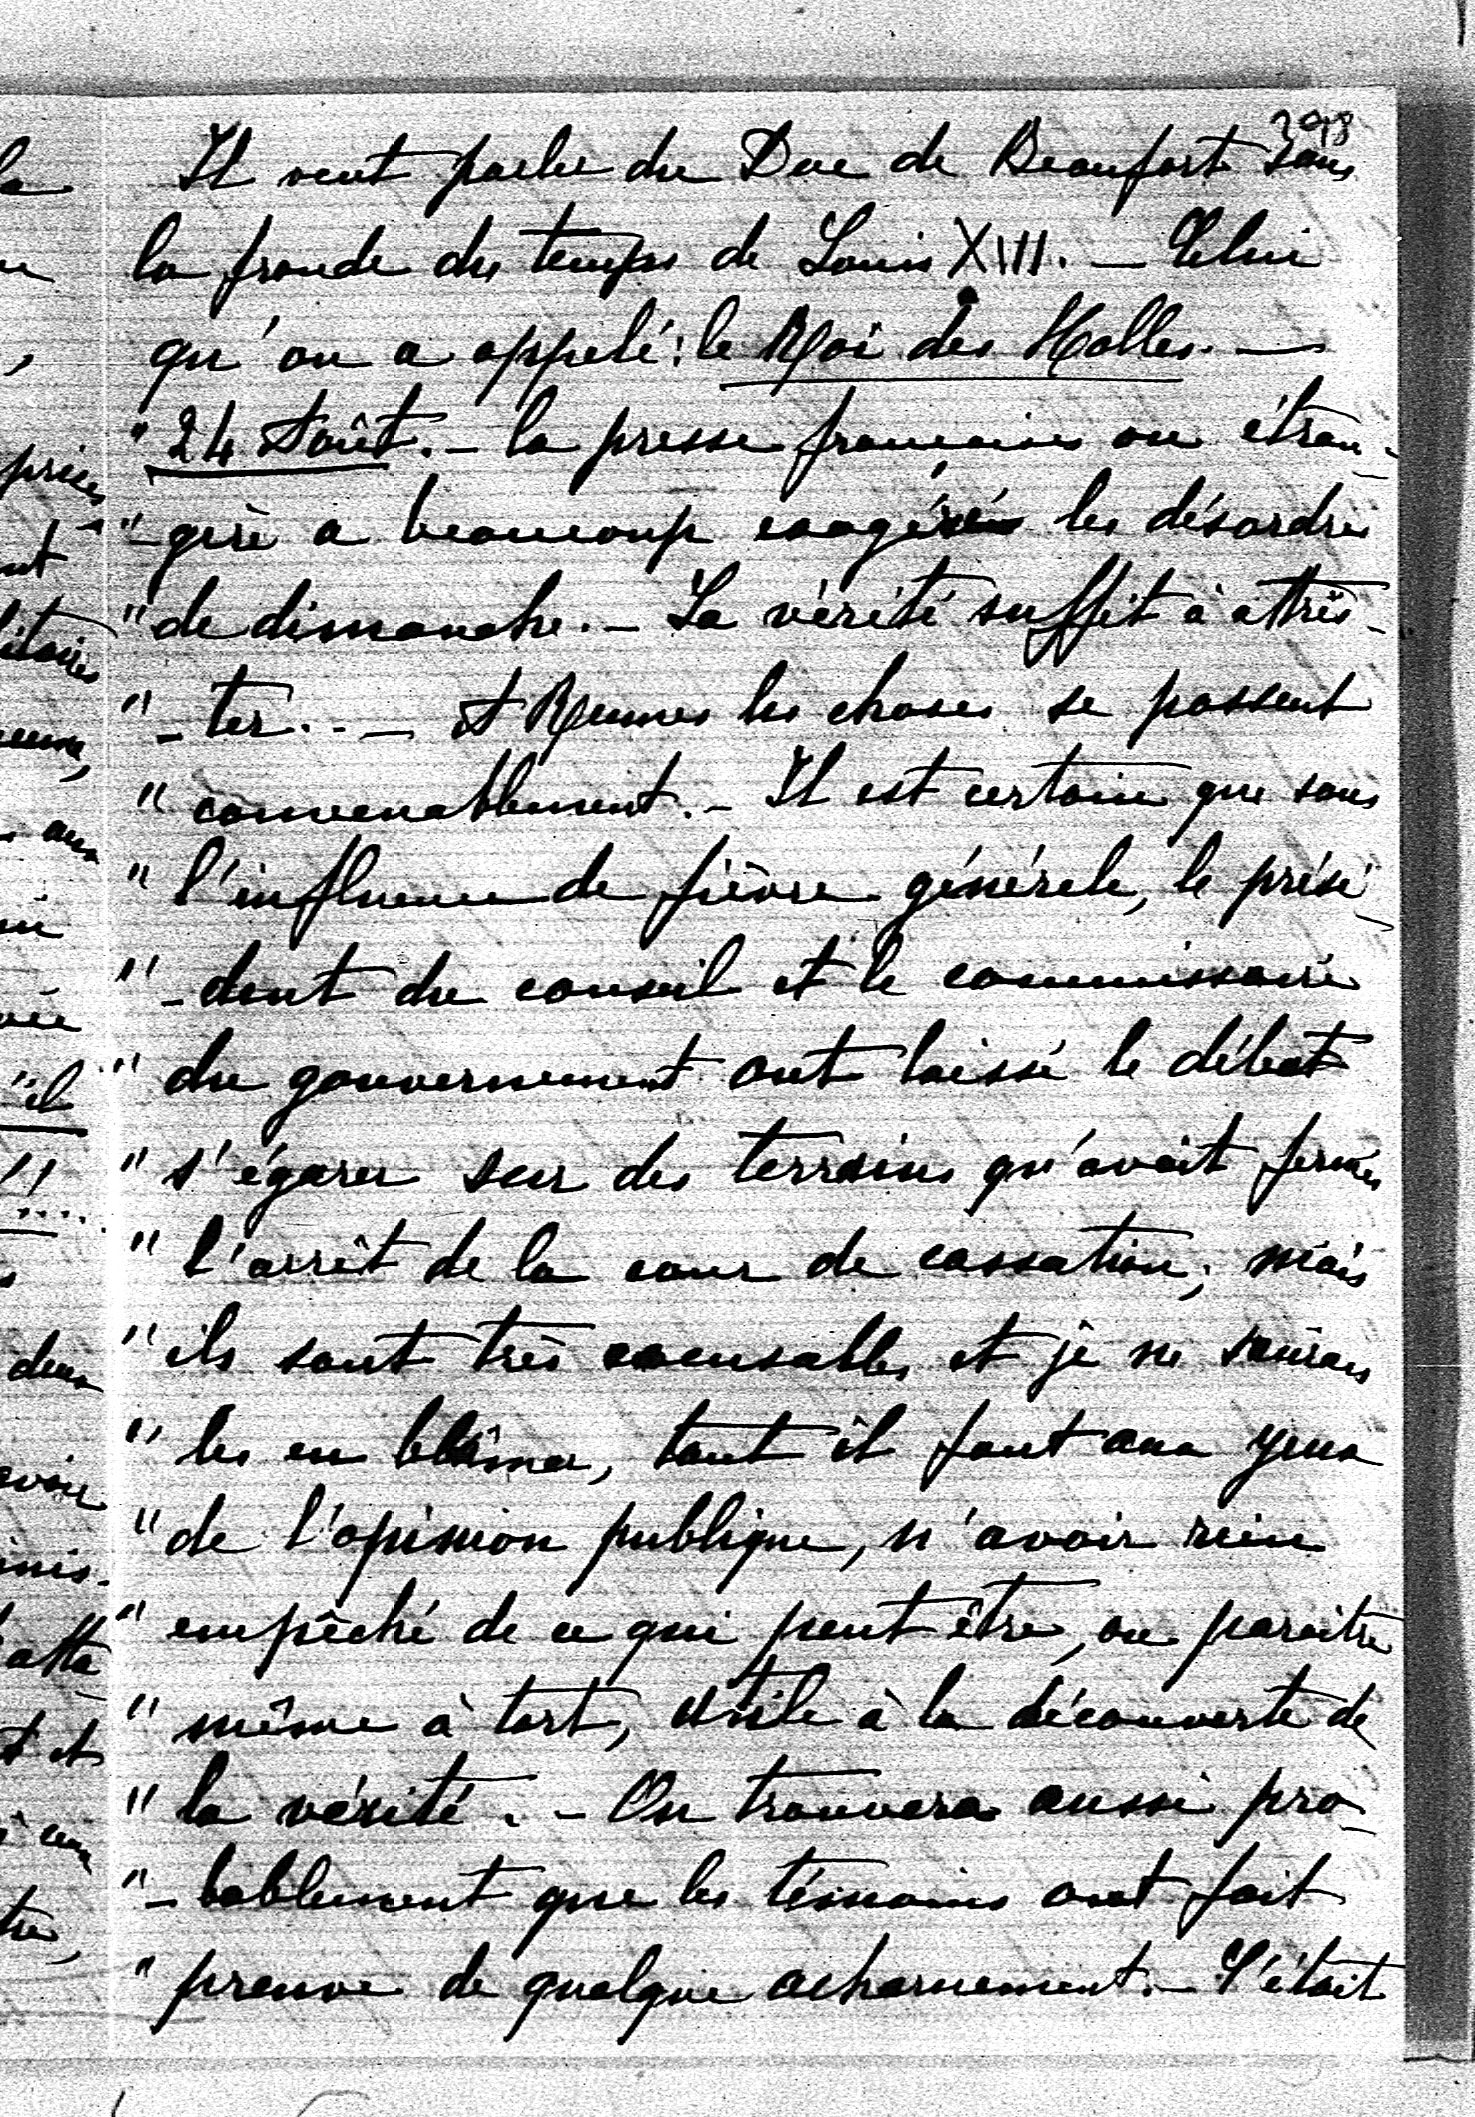 298
Il veut parler du Duc de Beaufort dans
la fronde du temps de Louis XIII. — Celui
qu'on a appelé : le Roi des Halles. —
" 24 Août. — la presse française ou étran-
" -gère a beaucoup exagéré les désordres
" de dimanche. — La vérité suffit à attris-
" -ter. . — A Rennes les choses se passent
" convenablement. — Il est certain que sous
" l'influence de fièvre générale, le prési-
" -dent du conseil et le commissaire
" du gouvernement ont laissé le débat
" s'égarer sur des terrains qu'avait fermés
" l'arrêt de la cour de cassation; mais
" ils sont très excusables et je ne saurais
" les en blâmer, tant il faut aux yeux
" de l'opinion publique, n'avoir rien
" empêché de ce qui peut être, ou paraître
" même à tort, utile à la découverte de
" la vérité. — On trouvera aussi pro-
" -bablement que les témoins ont fait
" preuve de quelque acharnement. — C'était